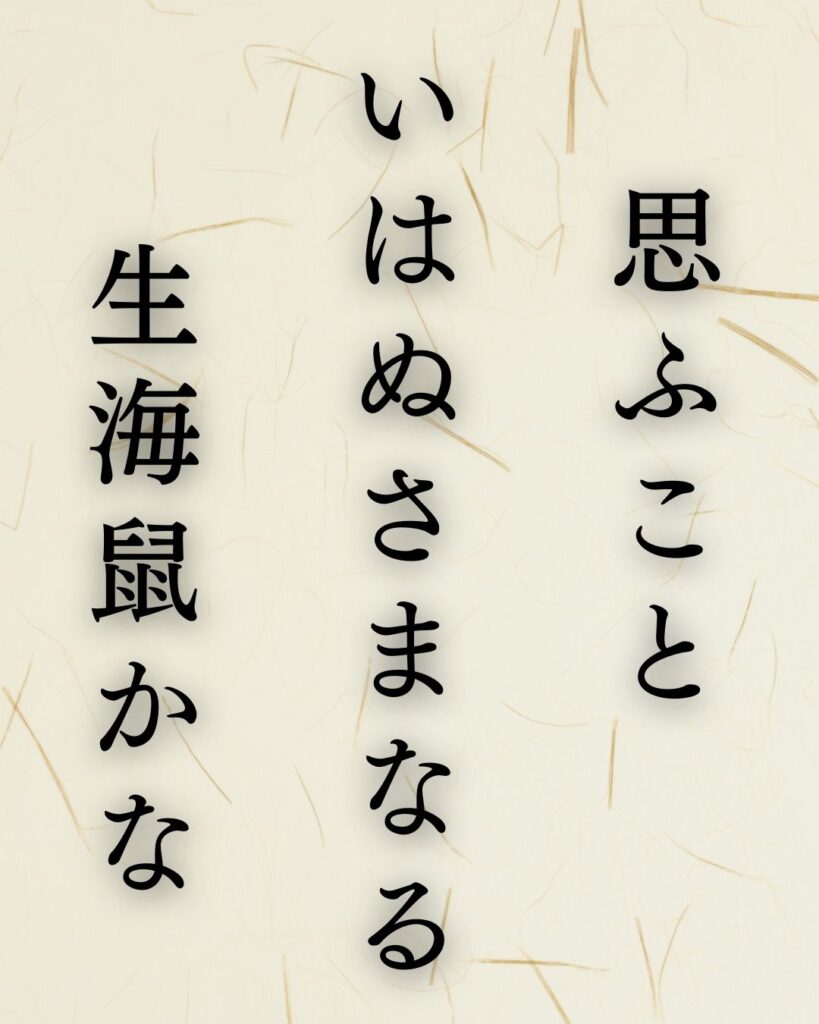 思ふこと
いはぬさまなる
生海鼠かな